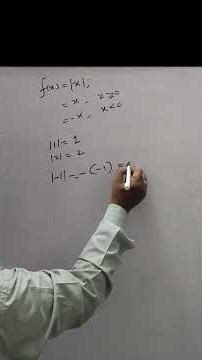 f(x) = |x| ;
= x ; x ≥ 0
= -x , x < 0
|1| = 1
|2| = 2
|-1| = -(-1) =